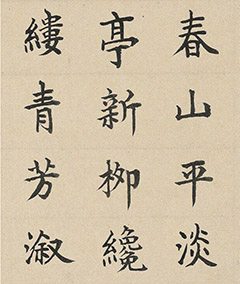 春山平淡
亭新柳纔
縷青芳溆